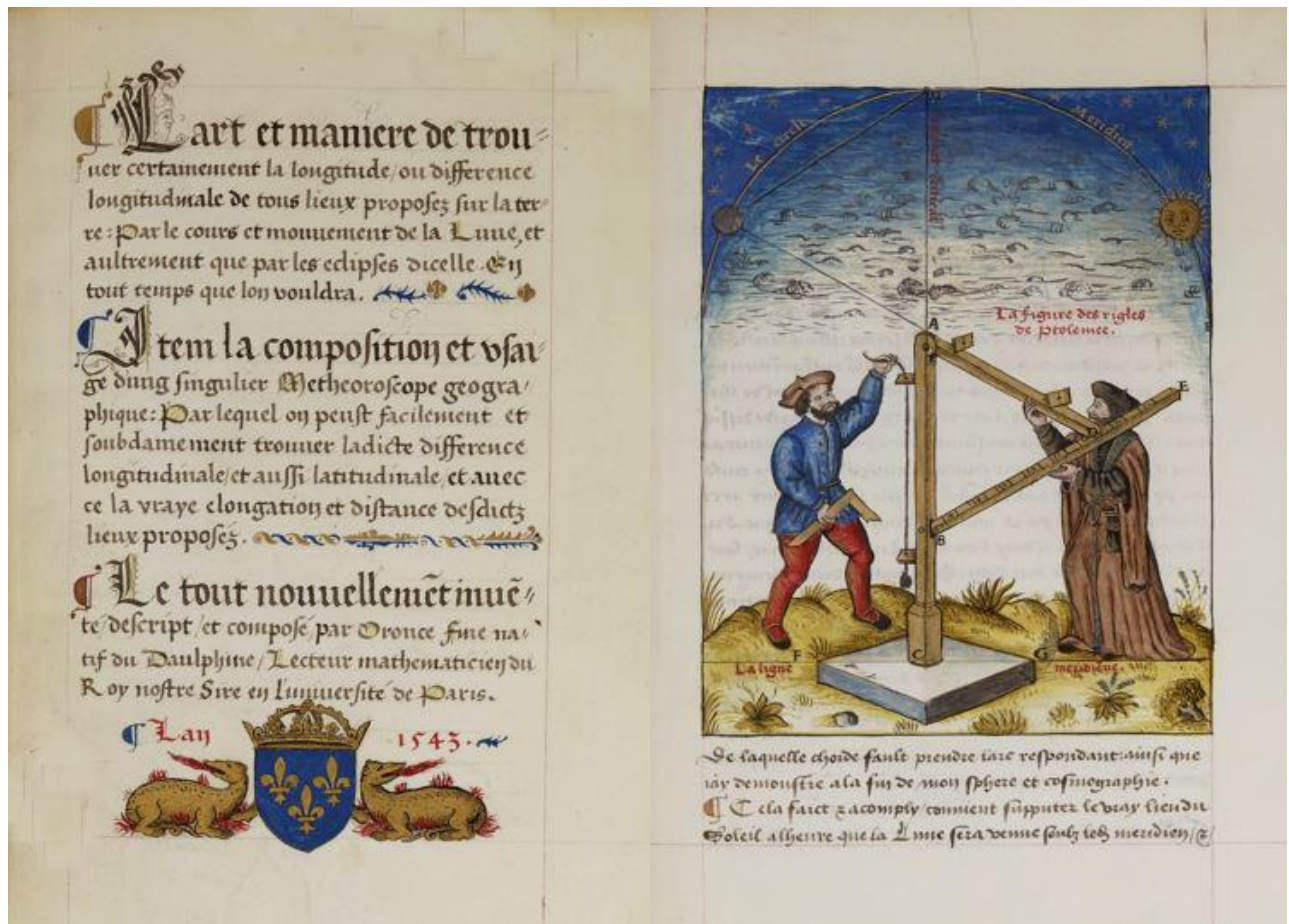 Lart et maniere de trou=
uer certainement la longitude/ou difference
longitudinale de tous lieux proposez sur la ter=
re: Par le cours et mouuement de la Lune, et
aultrement que par les eclipses dicelle. En
tout temps que lon vouldra.
Item la composition et vsai=
ge dung singulier Metheoroscope geogra/
phique: Par lequel on peust facilement et
soubdamement trouuer ladicte difference
longitudinale/et aussi latitudinale, et auec
ce la vraye elongation et distance desdictz
lieux proposez.
Le tout nouuellemēt inuē=
te/descript/et composé par Oronce fine na=
tif du Daulphine/Lecteur mathematicien du
Roy nostre Sire en Luniuersite de Paris.
Lan 1543.
Le circle Meridien
H
La figure des rigles
de Ptolemee.
A
E
B
F C G
La ligne meridiene.
De laquelle chorde fault prendre larc respondant: ainsi que
iay demonstre a la fin de mon sphere et cosmographie.
Cela faict & acomply conuient supputer le vray lieu du
Soleil alheure que la Lune sera venue soubz meridien/